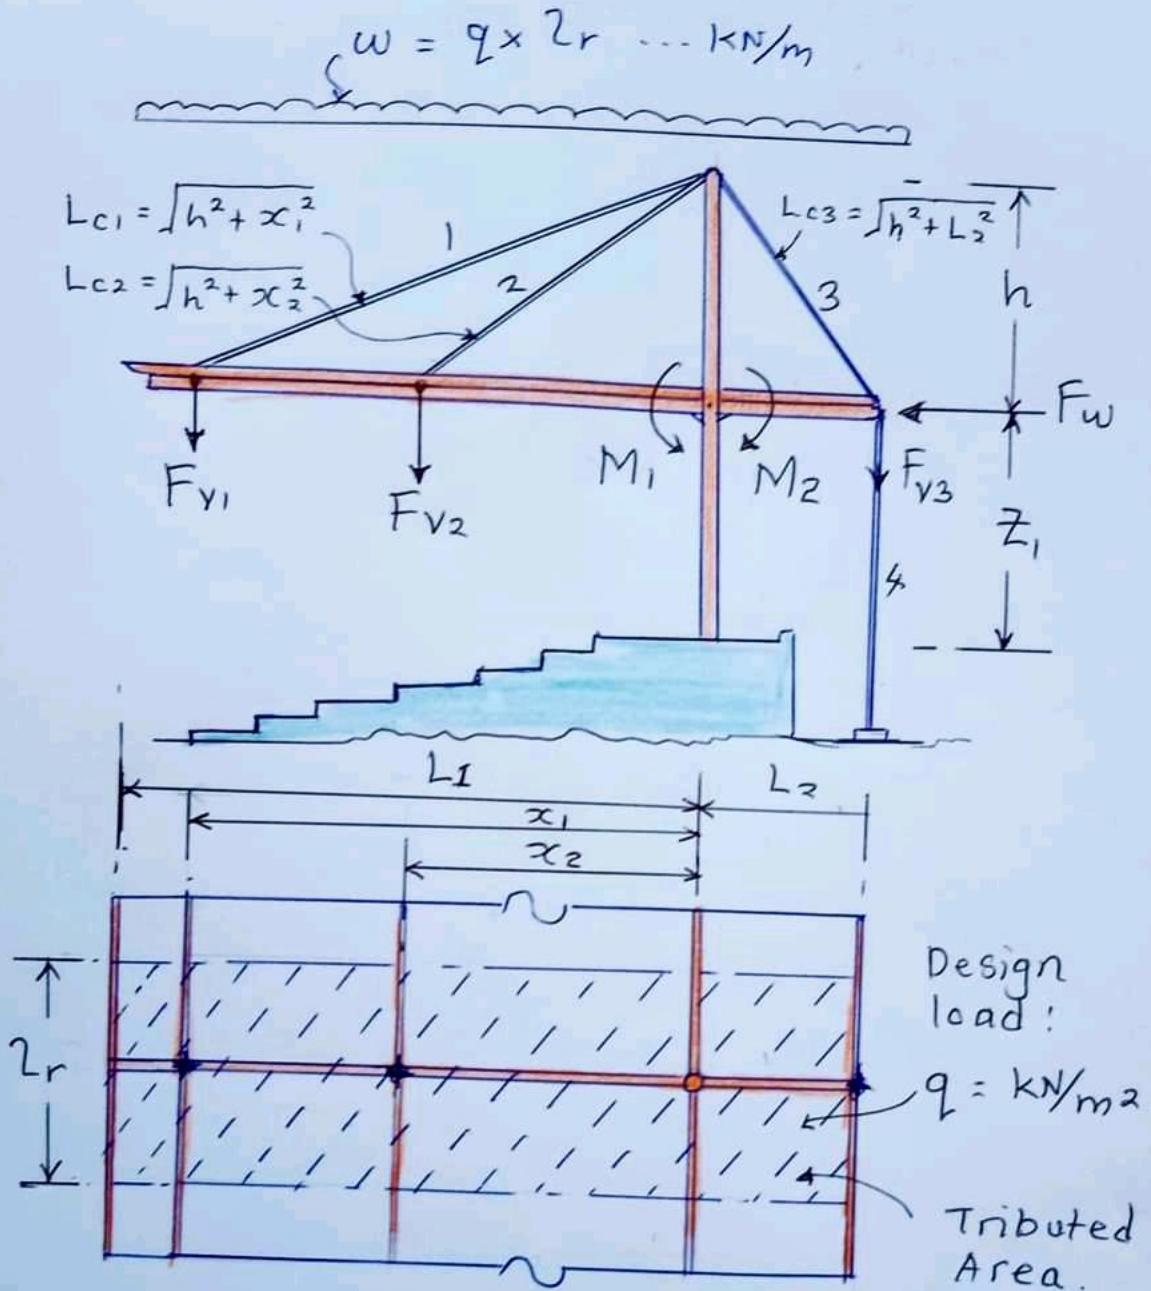 w = q x 2r ... kN/m
Lc1 = √h² + x₁²
Lc2 = √h² + x₂²
1
2
Lc3 = √h² + L₂²
3
h
Fv1
Fv2
M1
M2
Fw
Fv3
Z1
4
L1
L2
x1
x2
2r
Design
load:
q = kN/m²
Tributed
Area.